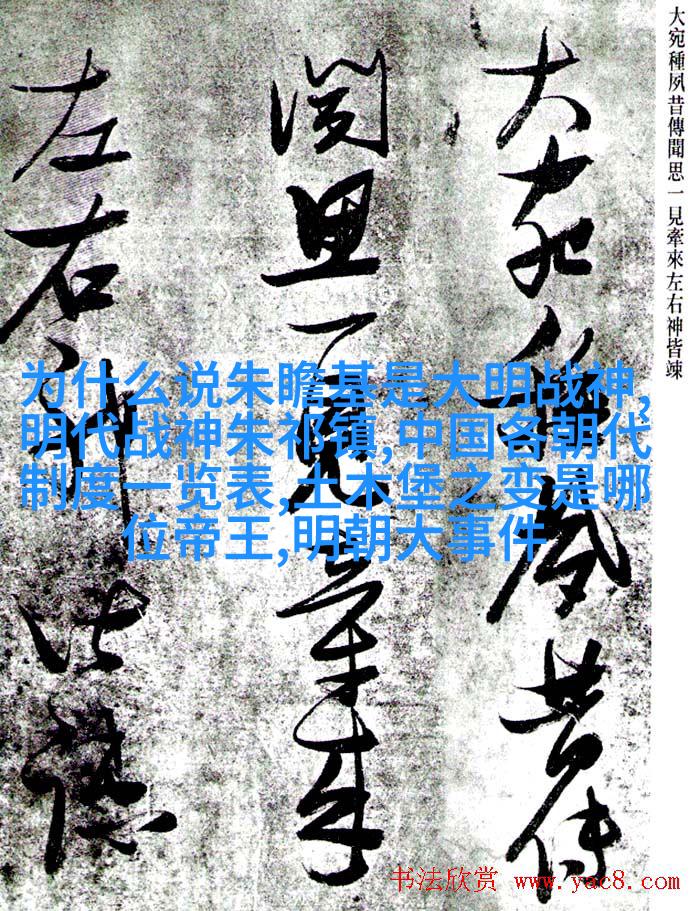 大宛種夙昔傳聞思一見牽來左右神皆竦
大宛種夙昔傳
聞思一見牽來
左右神皆竦
为什么说朱瞻基是大明战神,
明代战神朱祁镇,中国各朝代
制度一览表,土木堡之变是哪
位帝王,明朝大事件
书法欣赏 www.yac8.com